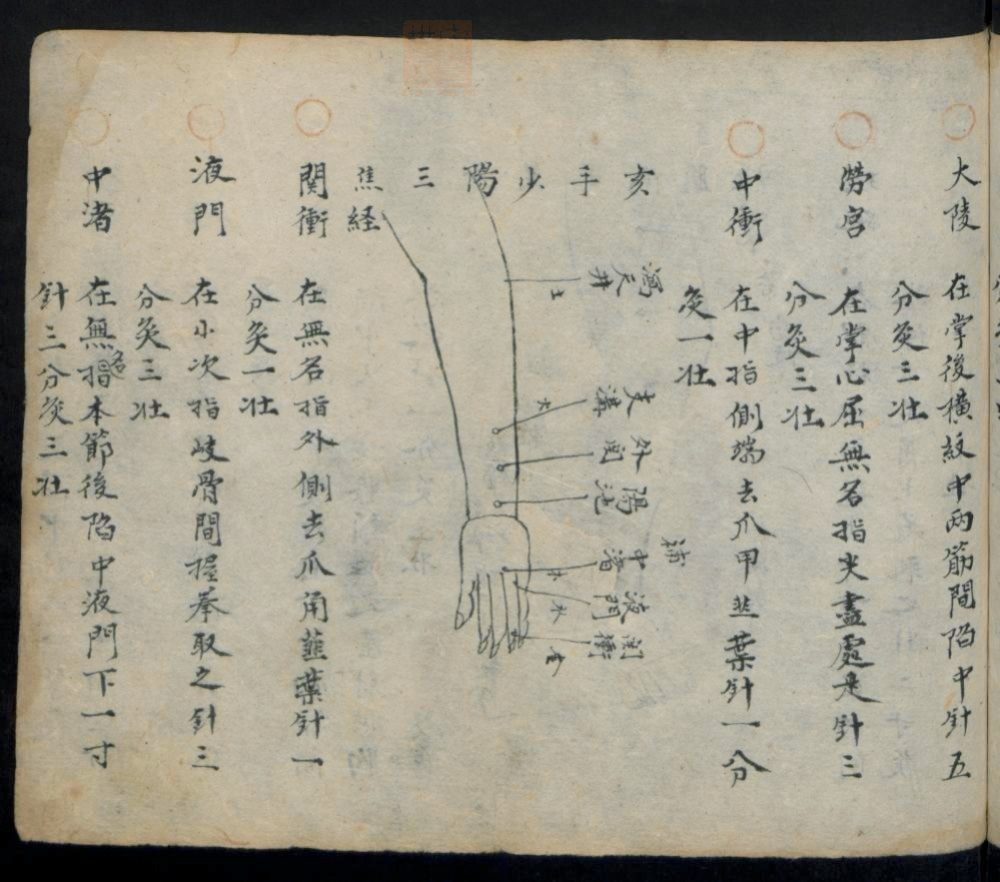 大陵 在掌後横紋中两筋間陷中針五
分灸三壮
勞宮 在掌心屈無名指尖盡處是針三
分灸三壮
中衝 在中指側端去爪甲韭葉針一分
灸一壮
亥 手 少 陽 三 焦 経
瀉 天井 土
支溝 火
外関
陽池
補 中渚 木
液門 水
関衝 金
関衝 在無名指外側去爪角韮葉針一
分灸一壮
液門 在小次指岐骨間握拳取之針三
分灸三壮
中渚 在無名指本節後陷中液門下一寸
針三分灸三壮